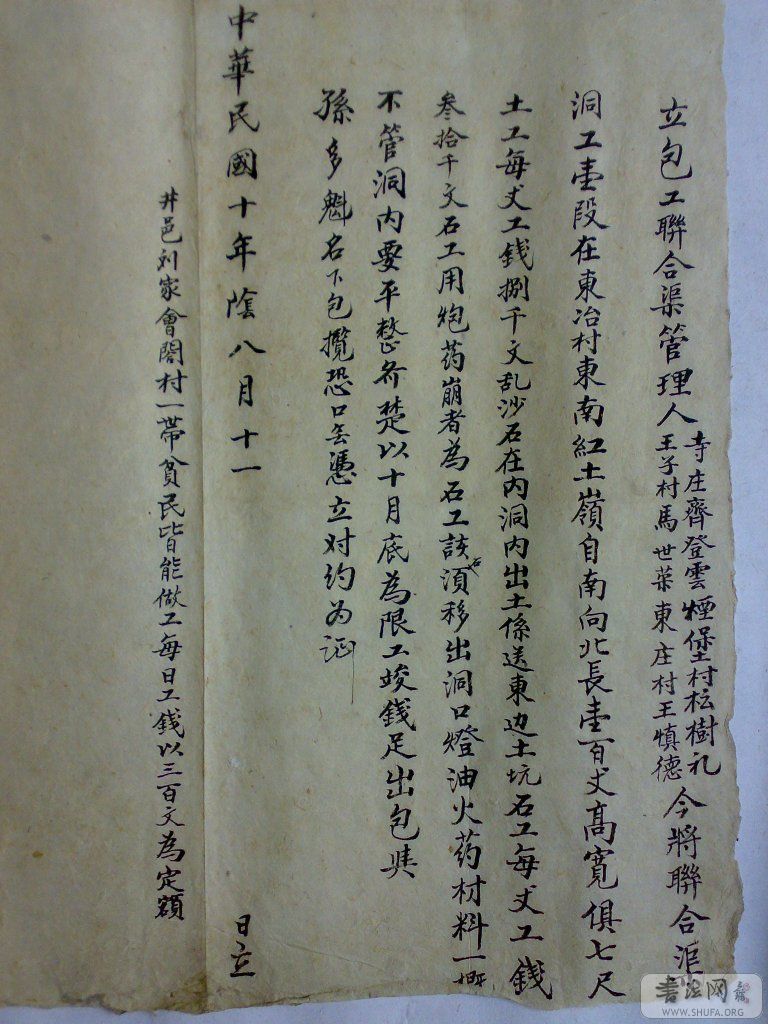 立包工聯合渠管理人
寺庄齊登雲煙堡村枟樹礼
王子村馬世葉東庄村王慎德
今將聯合渠
洞工壹段在東冶村東南紅土嶺自南向北長壹百丈髙寬俱七尺
土工每丈工錢捌千文乱沙石在内洞内出土係送東边土坑石工每丈工錢
叁拾千文石工用炮药崩者為石工該石湏移出洞口燈油火药材料一概
不管洞内要平整齐楚以十月底為限工竣錢足出包與
孫多魁名下包攬恐口無憑立对约为证
中華民國十年陰八月十一 日立
井邑刘家會閤村一帶貧民皆能做工每日工錢以三百文為定額
書法网
WWW.SHUFA.ORG